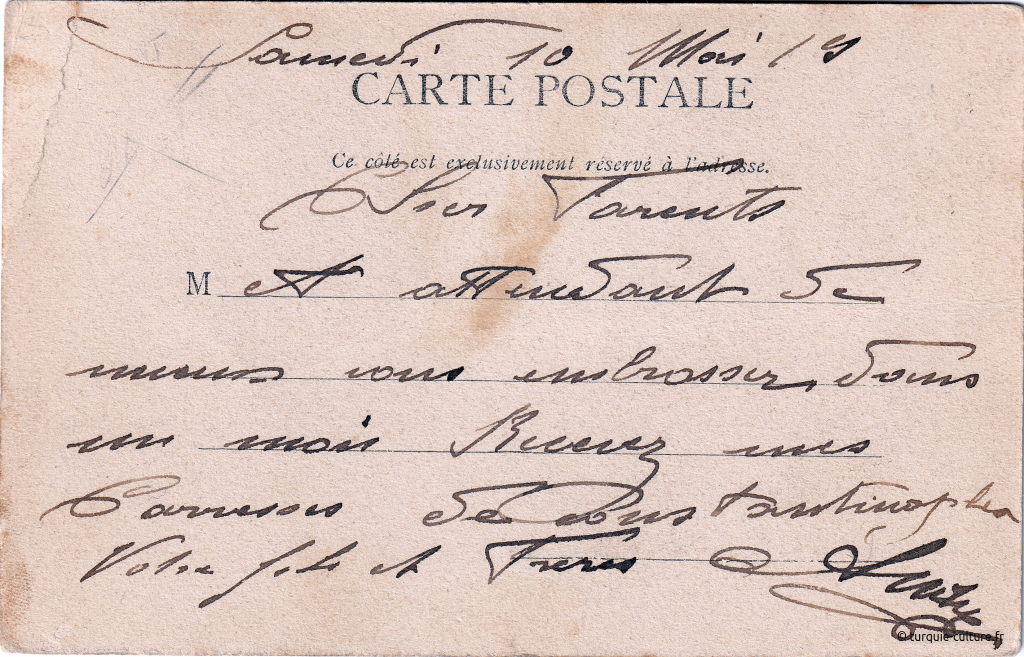 Samedi 10 Mai 19
CARTE POSTALE
Ce côté est exclusivement réservé à l'adresse.
Cher Parents
M et attendant de
mieux vous embrasser, dans
un mois Recevez mes
Carresses de Constantinople
Votre fils et Freres
© turquie-culture.fr